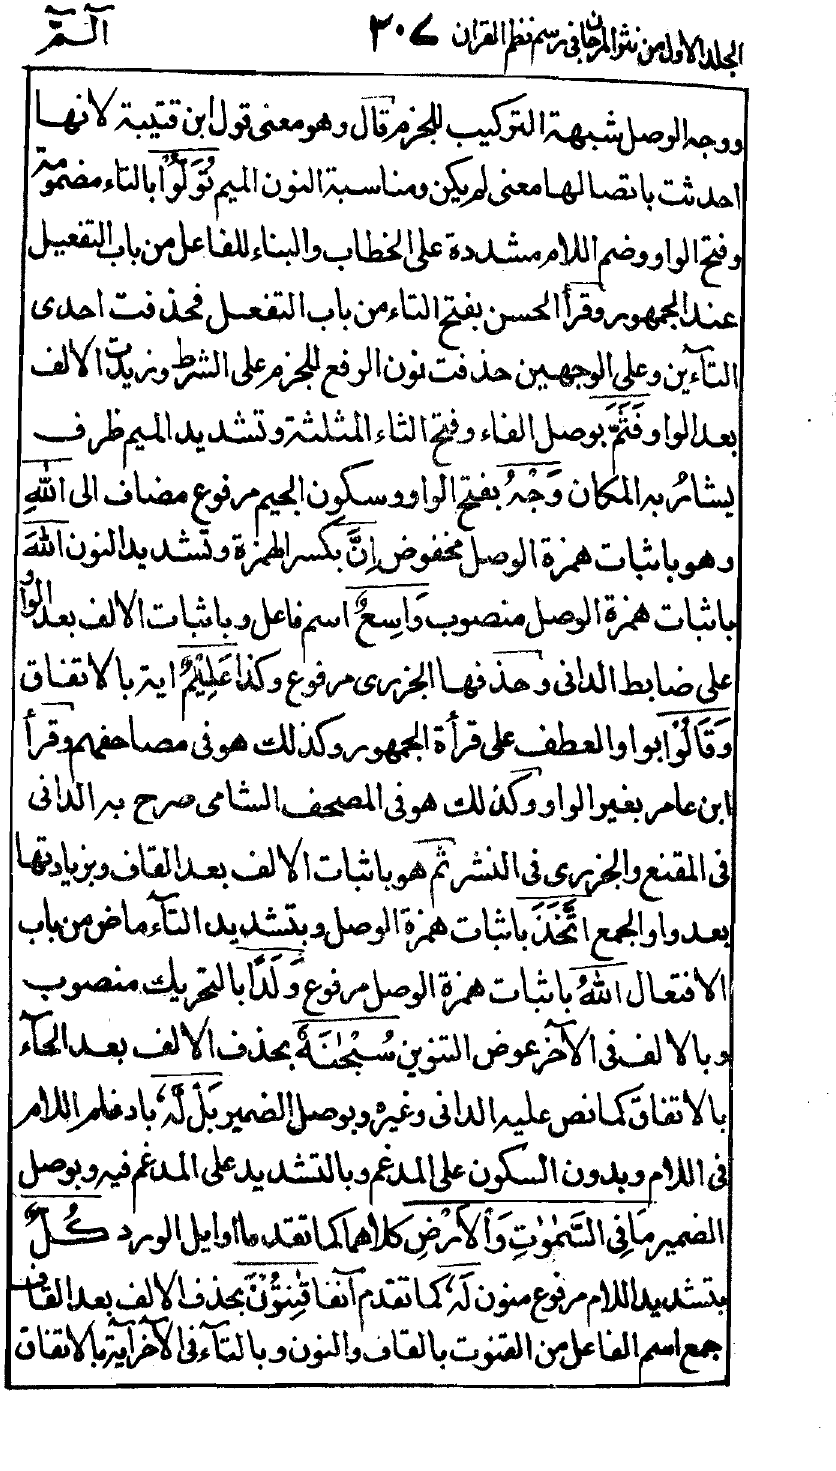 الجلد الاول من نثر المرجان فى رسم نظم القران ٣٠٧ الٓمّٓ
ووجه الوصل شبهة التركيب للجزم قال وهو معنى قول ابن قتيبة لانها
احدثت باتصالها معنى لم يكن ومناسبة النون الميم تُوَلُّوْا بالتاء مضمومة
وفتح الواو وضم اللام مشددة على الخطاب والبناء للفاعل من باب التفعيل
عند الجمهور وقرأ الحسن بفتح التاء من باب التفعل فحذفت احدى
التآءين وعلى الوجهين حذفت نون الرفع للجزم على الشرط وزيدت الالف
بعد الواو فَثَمَّ بوصل الفاء وفتح الثاء المثلثة وتشديد الميم ظرف
يشار به المكان وَجْهُ بفتح الواو وسكون الجيم مرفوع مضاف الى اللّٰهِ
وهو باثبات همزة الوصل مخفوض اِنَّ بكسر الهمزة وتشديد النون اللّٰهَ
باثبات همزة الوصل منصوب وَاسِعٌ اسم فاعل وباثبات الالف بعد الواو
على ضابط الدانى وحذفها الجزرى مرفوع وكذا عَلِيْمٌ اية بالاتفاق
وَقَالُوْا بواو العطف على قرأة الجمهور وكذلك هو فى مصاحفهم وقرأ
ابن عامر بغير الواو وكذلك هو فى المصحف الشامى صرح به الدانى
فى المقنع والجزرى فى النشر ثم هو باثبات الالف بعد القاف وبزيادتها
بعد واو الجمع اتَّخَذَ باثبات همزة الوصل وبتشديد التآء ماض من باب
الافتعال اللّٰهُ باثبات همزة الوصل مرفوع وَلَدًا بالتحريك منصوب
وبالالف فى الآخر عوض التنوين سُبْحٰنَهٗ بحذف الالف بعد الحآء
بالاتفاق كما نص عليه الدانى وغيره وبوصل الضمير بَلْ لَّهٗ بادغام اللام
فى اللام وبدون السكون على المدغم وبالتشديد على المدغم فيه وبوصل
الضمير مَا فِى السَّمٰوٰتِ وَالْاَرْضِ كلاهما كما تقدما اوايل الورد كُلٌّ
بتشديد اللام مرفوع منون لَهٗ كما تقدم آنفا قٰنِتُوْنَ بحذف الالف بعد القاف
جمع اسم الفاعل من القنوت بالقاف والنون وبالتآء فى الآخر اية بالاتفاق